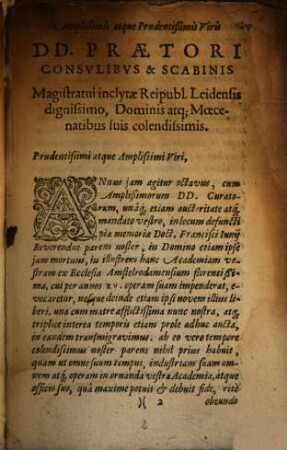 Amplissimis atque Prudentissimis Viris
DD. PRÆTORI
CONSVLIBVS & SCABINIS
Magistratui inclytæ Reipubl. Leidensis
dignissimo, Dominis atq; Mœce-
natibus suis colendissimis.
Prudentissimi atque Amplissimi Viri,
ANnus jam agitur octavus, cum
Amplissimorum DD. Curato-
rum, unáq; etiam auctoritate atq;
mandato vestro, in locum defuncti
piæ memoriæ Doct. Francisci Iunij
Reverendus parens noster, in Domino etiam ipse
jam mortuus, in illustrem hanc Academiam ve-
stram ex Ecclesia Amstelrodamensi florentissi-
ma, cui per annos xv. operam suam impenderat, e-
vocaretur, nosque deinde etiam ipsi novem illius li-
beri, una cum matre afflictissima nunc nostra, atq;
triplice interea temporis etiam prole adhuc aucta,
in eandem transmigravimus. ab eo vero tempore
colendissimus noster parens nihil prius habuit,
quam ut omne suum tempus, industriam suam om-
nem atq; operam in ornanda vestra Academia, atque
officio suo, quâ maxime potuis & debuit fide, ritè
)( 2 obeundo
2